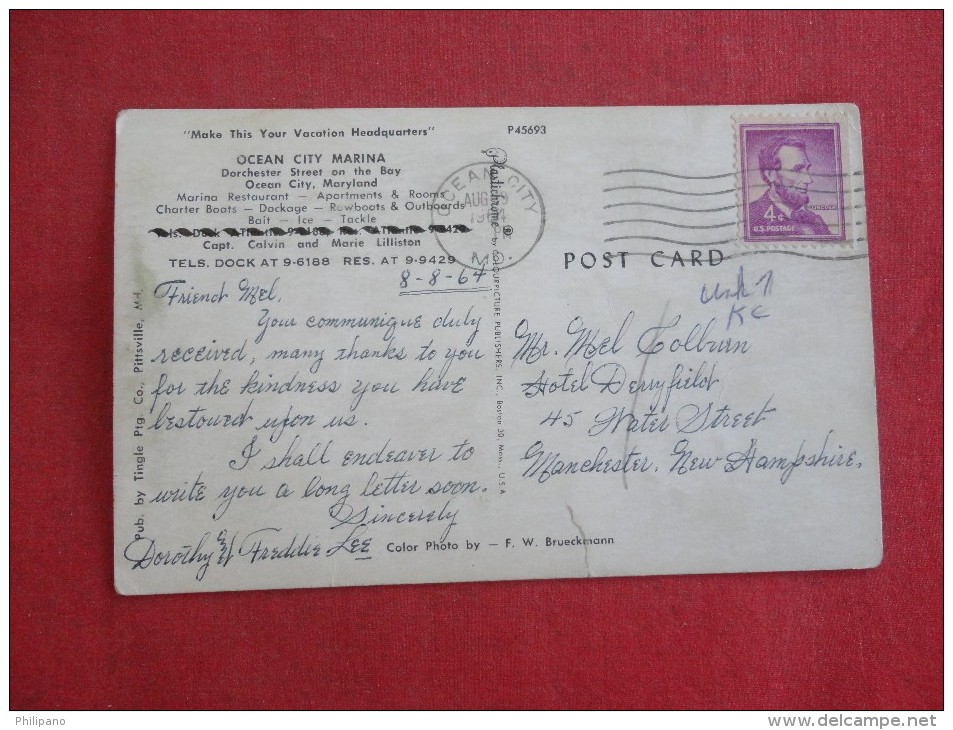 "Make This Your Vacation Headquarters"
OCEAN CITY MARINA
Dorchester Street on the Bay
Ocean City, Maryland
Marina Restaurant — Apartments & Rooms
Charter Boats — Dockage — Rowboats & Outboards
Bait — Ice — Tackle
Capt. Calvin and Marie Lilliston
TELS. DOCK AT 9-6188 RES. AT 9-9429
P45693
Plastichrome ® by COLOURPICTURE PUBLISHERS, INC., Boston 30, Mass., U.S.A.
OCEAN CITY
AUG
1964
MD.
LINCOLN
4¢
U.S. POSTAGE
POST CARD
8-8-64
Friend Mel,
Your communique duly
received, many thanks to you
for the kindness you have
bestowed upon us.
I shall endeaver to
write you a long letter soon.
Sincerely
Dorothy & Freddie Lee
KC
Mr. Mel Colburn
Hotel Derryfield
45 Water Street
Manchester, New Hampshire.
Pub. by Tingle Ptg. Co., Pittsville, Md.
Color Photo by — F. W. Brueckmann
Philipano
www.delcampe.net